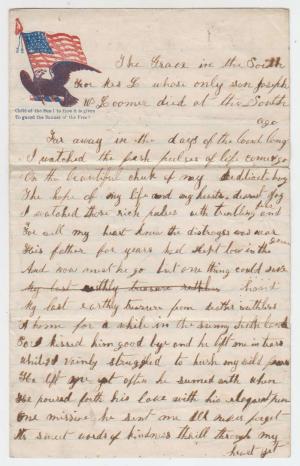 Child of the Sun! to thee it is given
To guard the Banner of the Free!
The Grave in the South
For Mrs L whose only son Joseph
W Loomer died at the South
ago
Far away in the days of the long
I watched the pulses of life come go
On the beautiful cheek of my
The hope of my life and my hearts joy
I watched those rich pulses with trembling
For well my heart knew the of war
His father for years had slept low in the
And now must go but one thing could save
My last earthly treasure
My last earthy treasure from deaths ruthless
hand
A home for a while in the sunny South land
So I kissed him good bye and he left me in tears
Whilst I vainly struggled to hush my wild fears
He left me yet often he
He poured forth his love with his pen
One missive he sent me Ill never forget
Its sweet words of kindness thrill through my
heart yet